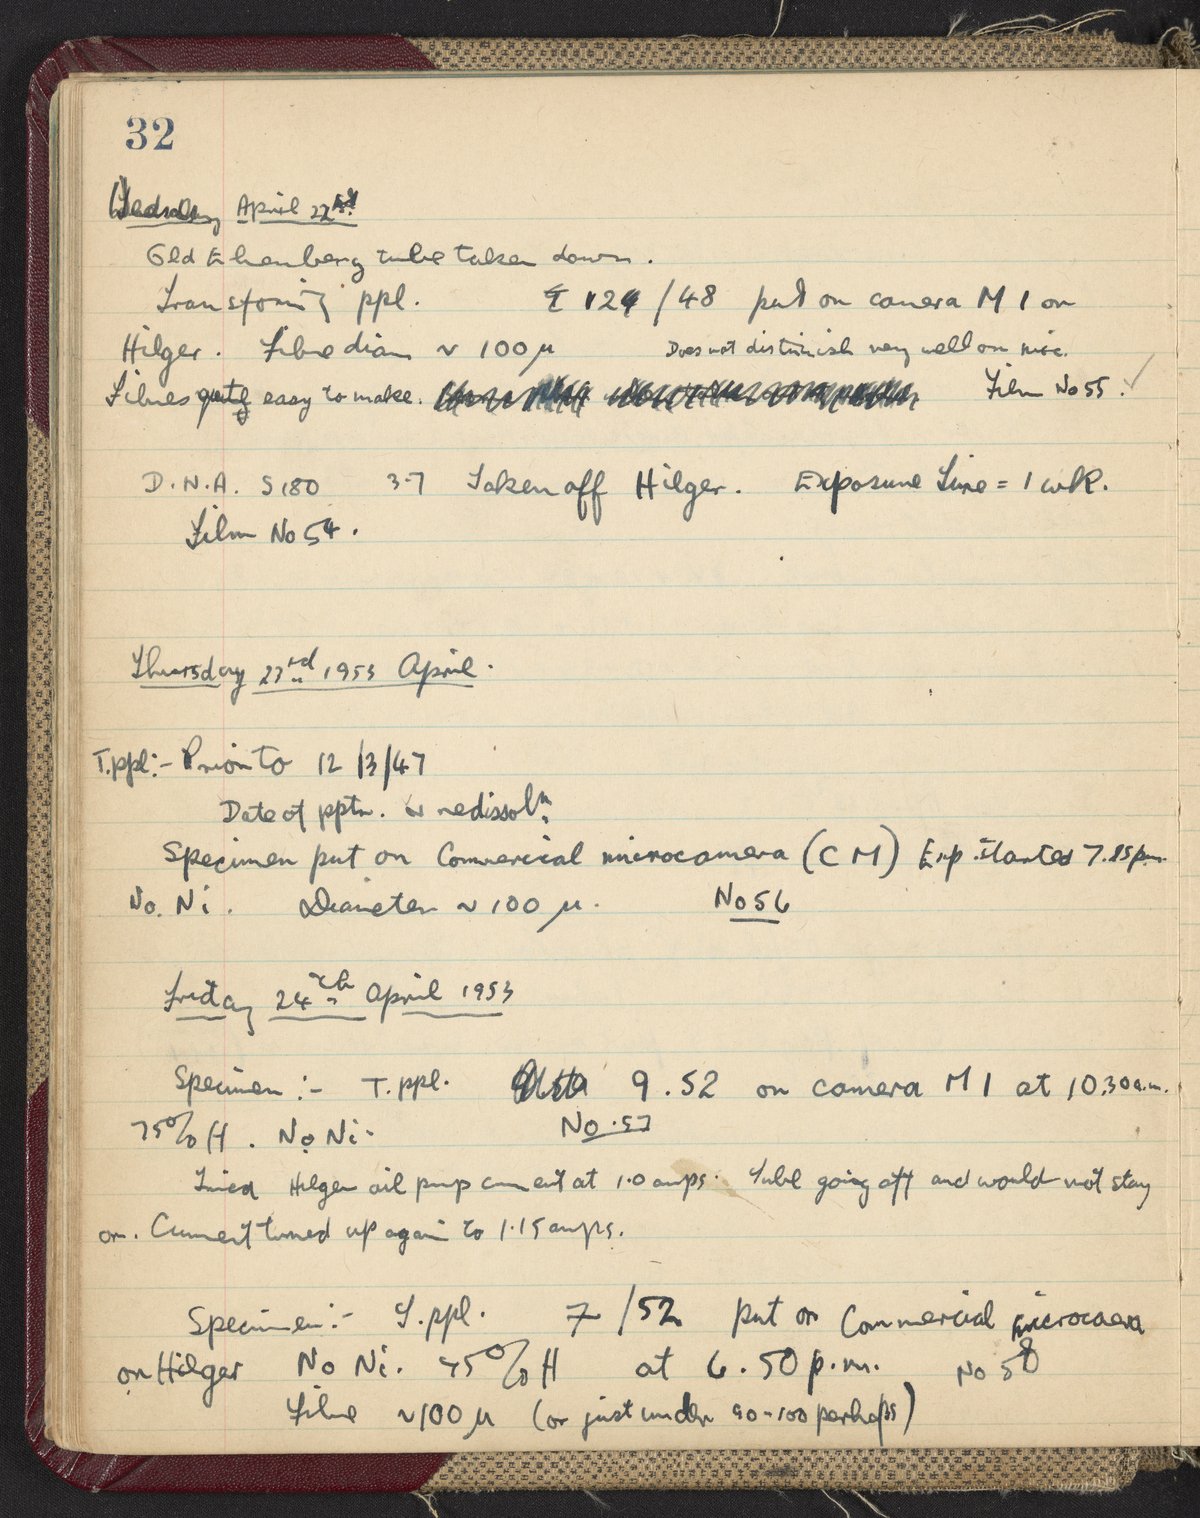 32
Wednesday April 22nd
Old Ehrenberg tube taken down.
Transforming ppl. 124/48 put on camera M1 on
Hilger. Fibre diam ~ 100 μ Does not distinish very well on mic.
Fibres quite easy to make. Film No 55. ✓
D.N.A. S180 3.7 Taken off Hilger. Exposure Time = 1 wk.
Film No 54.
Thursday 23rd 1953 April.
T.ppl:- Prior to 12/3/47
Date of pptn. or redissoln.
Specimen put on Commercial microcamera (CM) Exp. started 7.25 p.m.
No. Ni. Diameter ~ 100 μ. No 56
Friday 24th April 1953
Specimen :- T.ppl. 9.52 on camera M1 at 10.30 a.m.
75% H. No Ni. No. 57
Tried Hilger oil pump current at 1.0 amps. Tube going off and would not stay
on. Current turned up again to 1.15 amps.
Specimen:- T.ppl. 7/52 put on Commercial microcaera
on Hilger No Ni. 75% H at 6.50 p.m. No 58
Fibre ~100 μ (or just under 90-100 perhaps)